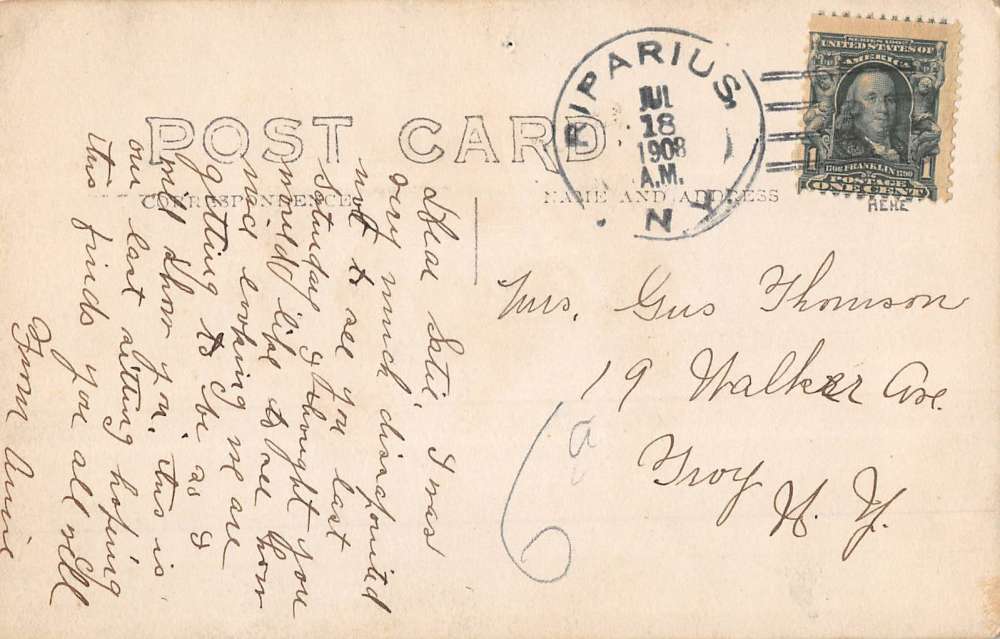 POST CARD
CORRESPONDENCE
NAME AND ADDRESS
RIPARIUS
JUL
18
1908
A.M.
N.Y.
SERIES 1902
UNITED STATES OF
AMERICA
1706 FRANKLIN 1790
1 1
POSTAGE
ONE CENT
HERE
Mrs. Gus Thomson
19 Walker Ave.
Troy
N. Y.
6
Dear Satie, I was
very much disapointed
not to see you last
Saturday I thought you
would like to see how
nice looking we are
getting to be as I
will show you. this is
our last sitting hoping
this finds you all well
From Annie